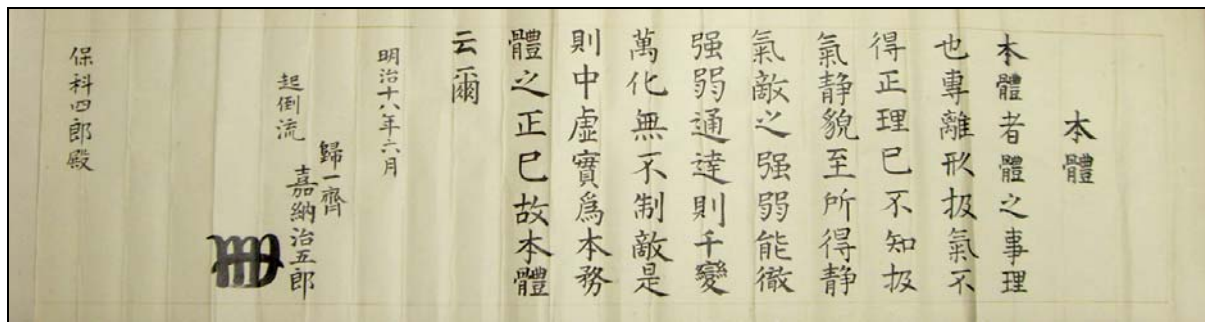 本體
本體者體之事理
也專離形扱氣不
得正理已不知扱
氣静貌至所得静
氣敵之强弱能徹
强弱通達則千變
萬化無不制敵是
則中虛實爲本務
體之正已故本體
云爾
明治十八年六月
起倒流
歸一齊
嘉納治五郎
保科四郎殿